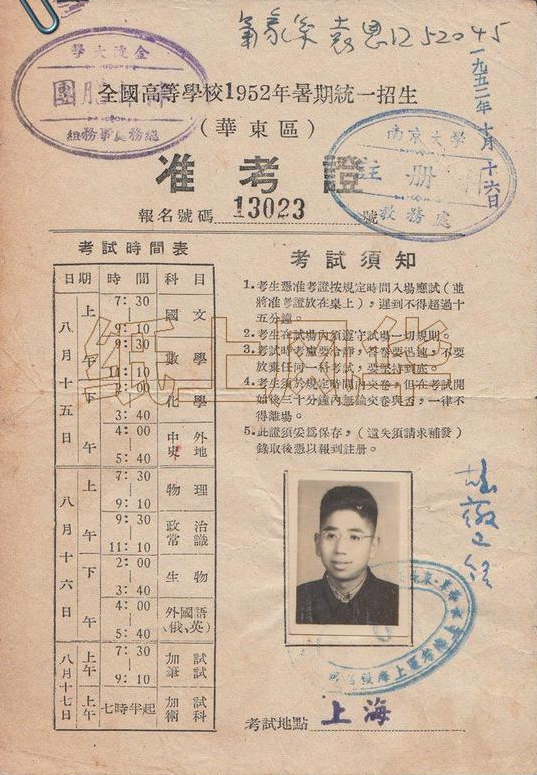 氣象系 袁恩江 52045
一九五二年十月十六日
金陵大學
團
總務處事務組
全國高等學校1952年暑期統一招生
(華東區)
南京大學
註冊
教務處
准考證
報名號碼 13023 號
考試時間表
日期 時間 科目
八月十五日
上午
7:30
9:10
國文
9:30
11:10
數學
下午
2:00
3:40
化學
4:00
5:40
中外
史地
八月十六日
上午
7:30
9:10
物理
9:30
11:10
政治
常識
下午
2:00
3:40
生物
4:00
5:40
外國語
(俄、英)
八月十七日
上午
7:30
9:10
加試
筆試
上午
七時半起
加試
術科
考試須知
1.考生憑准考證按規定時間入場應試(並
將准考證放在桌上),遲到不得超過十
五分鐘。
2.考生在試場內須遵守試場一切規則。
3.考試時考慮要冷靜,答卷要迅速,不要
放棄任何一科考試,要堅持到底。
4.考生須於規定時間內交卷,但在考試開
始後三十分鐘內無論交卷與否,一律不
得離場。
5.此證須妥爲保存,(遺失須請求補發)
錄取後憑以報到註冊。
紙上
考試地點 上海